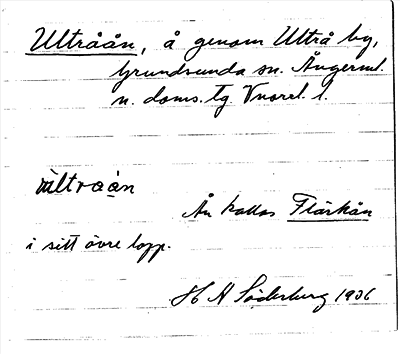 Ultråån, å genom Ultrå by,
Grundsunda sn. Ångerml.
n. doms. tg.
ùltraàn
Ån kallas Flärkån
i sitt övre lopp.
H N Söderberg 1936